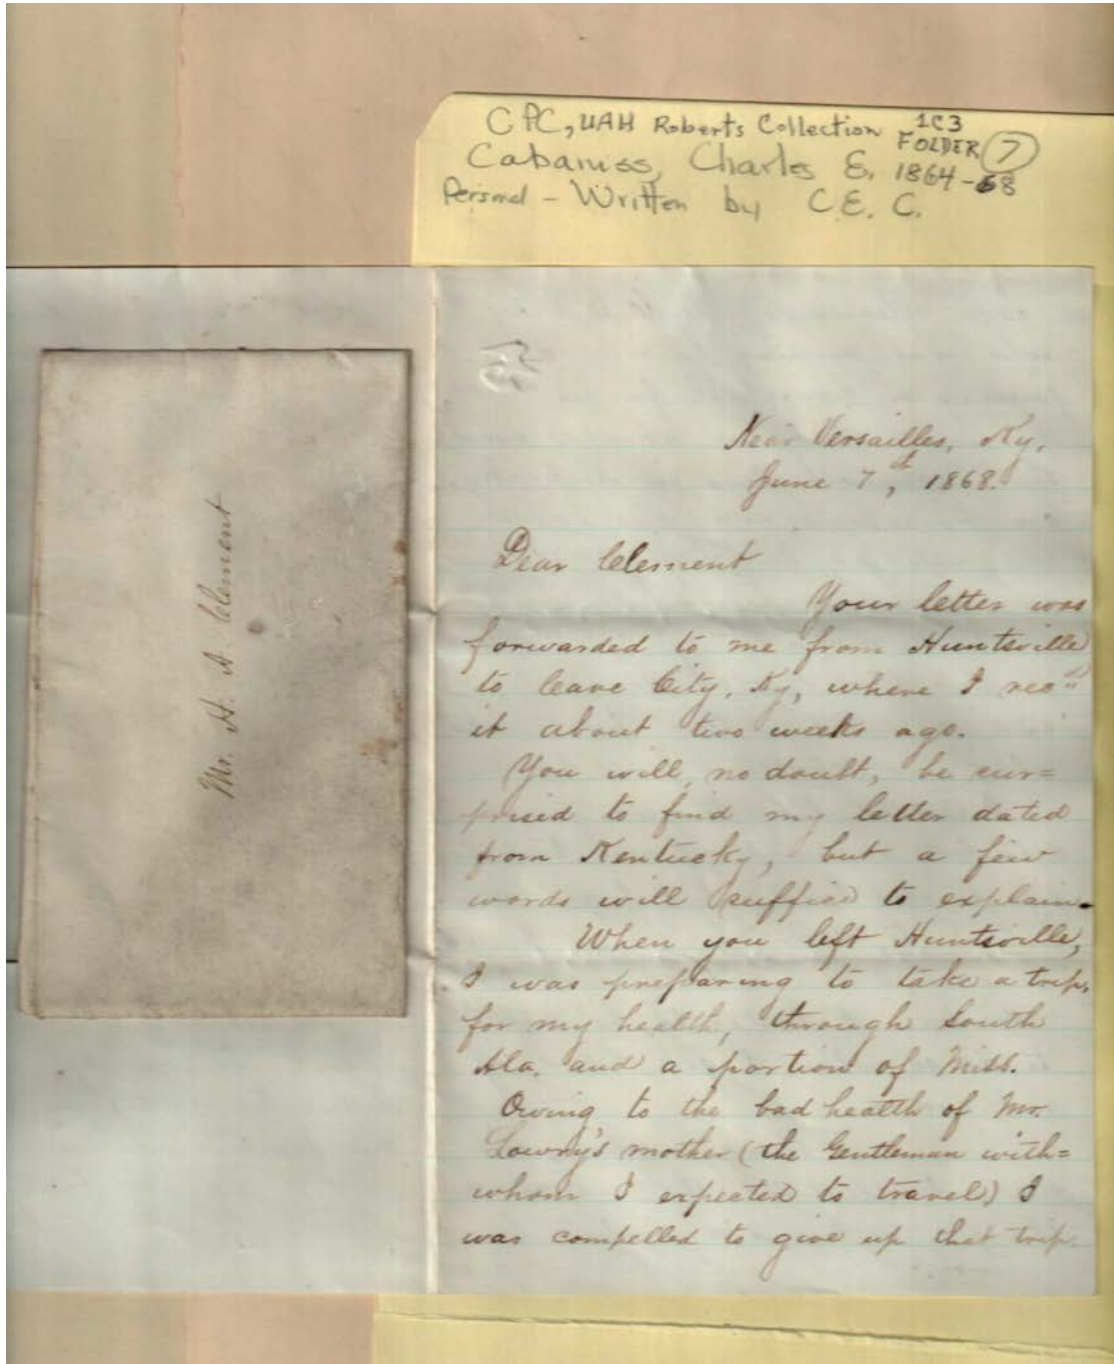 CPC, UAH Roberts Collection 1C3
FOLDER 7
Cabaniss, Charles E. 1864-68
Personal - Written by C.E.C.
Mr. H. A. Clement
Near Versailles, Ky.
June 7th, 1868.
Dear Clement
Your letter was
forwarded to me from Huntsville
to Cave City, Ky, where I rec'd
it about two weeks ago.
You will, no doubt, be sur=
prised to find my letter dated
from Kentucky, but a few
words will suffice to explain.
When you left Huntsville,
I was preparing to take a trip,
for my health, through South
Ala. and a portion of Miss.
Owing to the bad health of Mr.
Lowry's mother (the Gentleman with=
whom I expected to travel) I
was compelled to give up that trip.